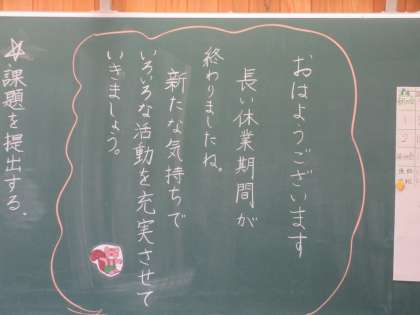 おはようございます
長い休業期間が
終わりましたね。
新たな気持ちで
いろいろな活動を充実させて
いきましょう。
☆課題を提出する.